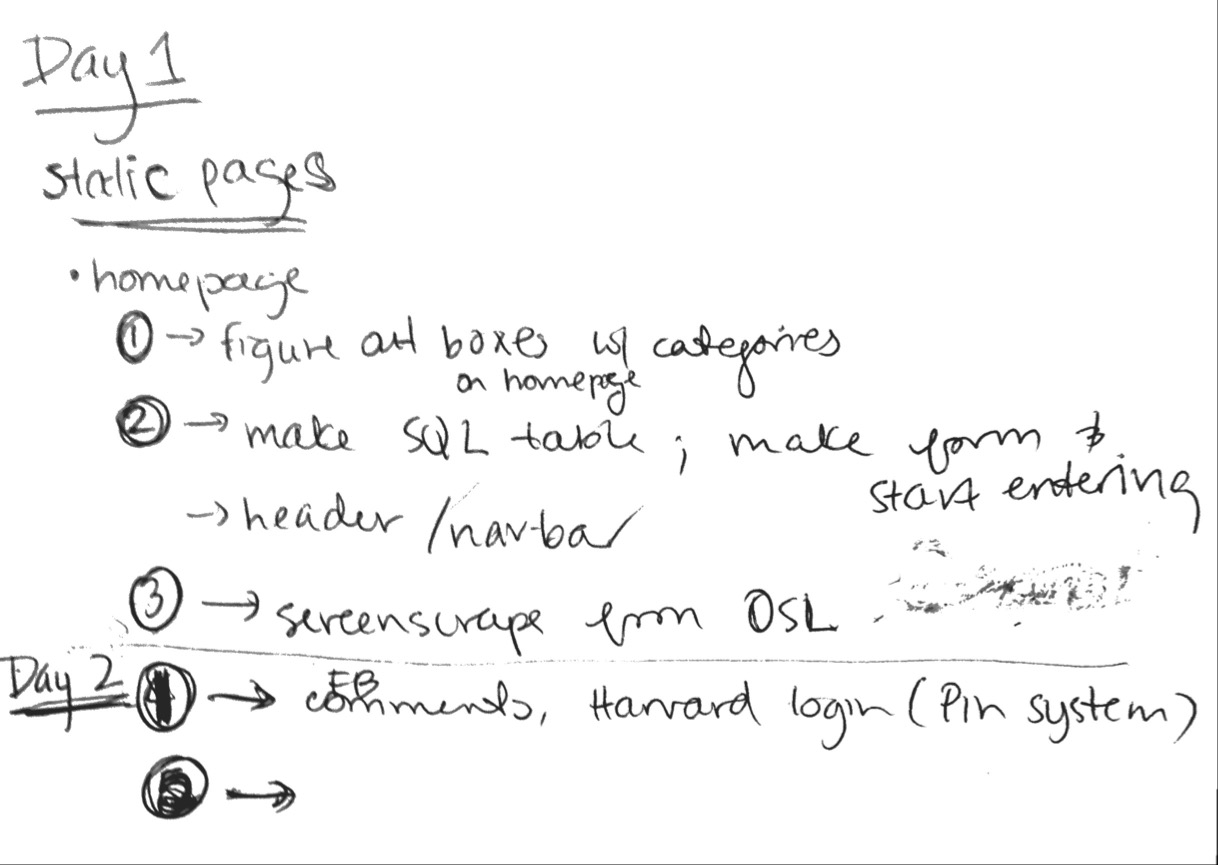 Day 1
static pages
• homepage
① → figure out boxes w/ categories
on homepage
② → make SQL table ; make form &
start entering
→ header / navbar
③ → screenscrape from OSL
Day 2 → FB comments, Harvard login (Pin system)
→